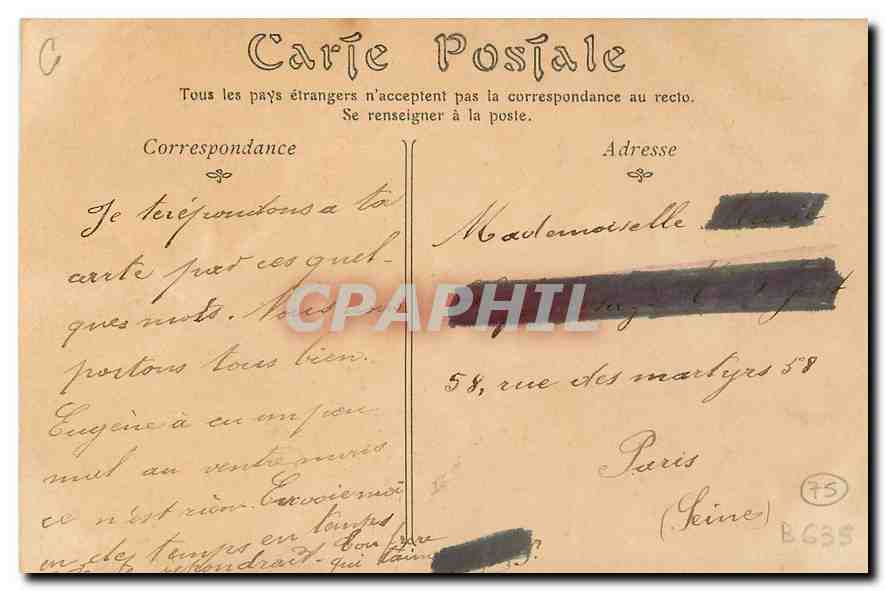 C
Carte Postale
Tous les pays étrangers n'acceptent pas la correspondance au recto.
Se renseigner à la poste.
Correspondance
Adresse
Je terépondons a ta
carte par ces quel-
ques mots. Nous
portons tous bien.
Eugène à eu un peu
mal au ventre mais
ce n'est rien. Envoie moi
en des temps en temps
repondrait. Ton frere
qui t'aime
Mademoiselle
58, rue des martyrs 58
Paris
(Seine)
75
B635
CPAPHIL